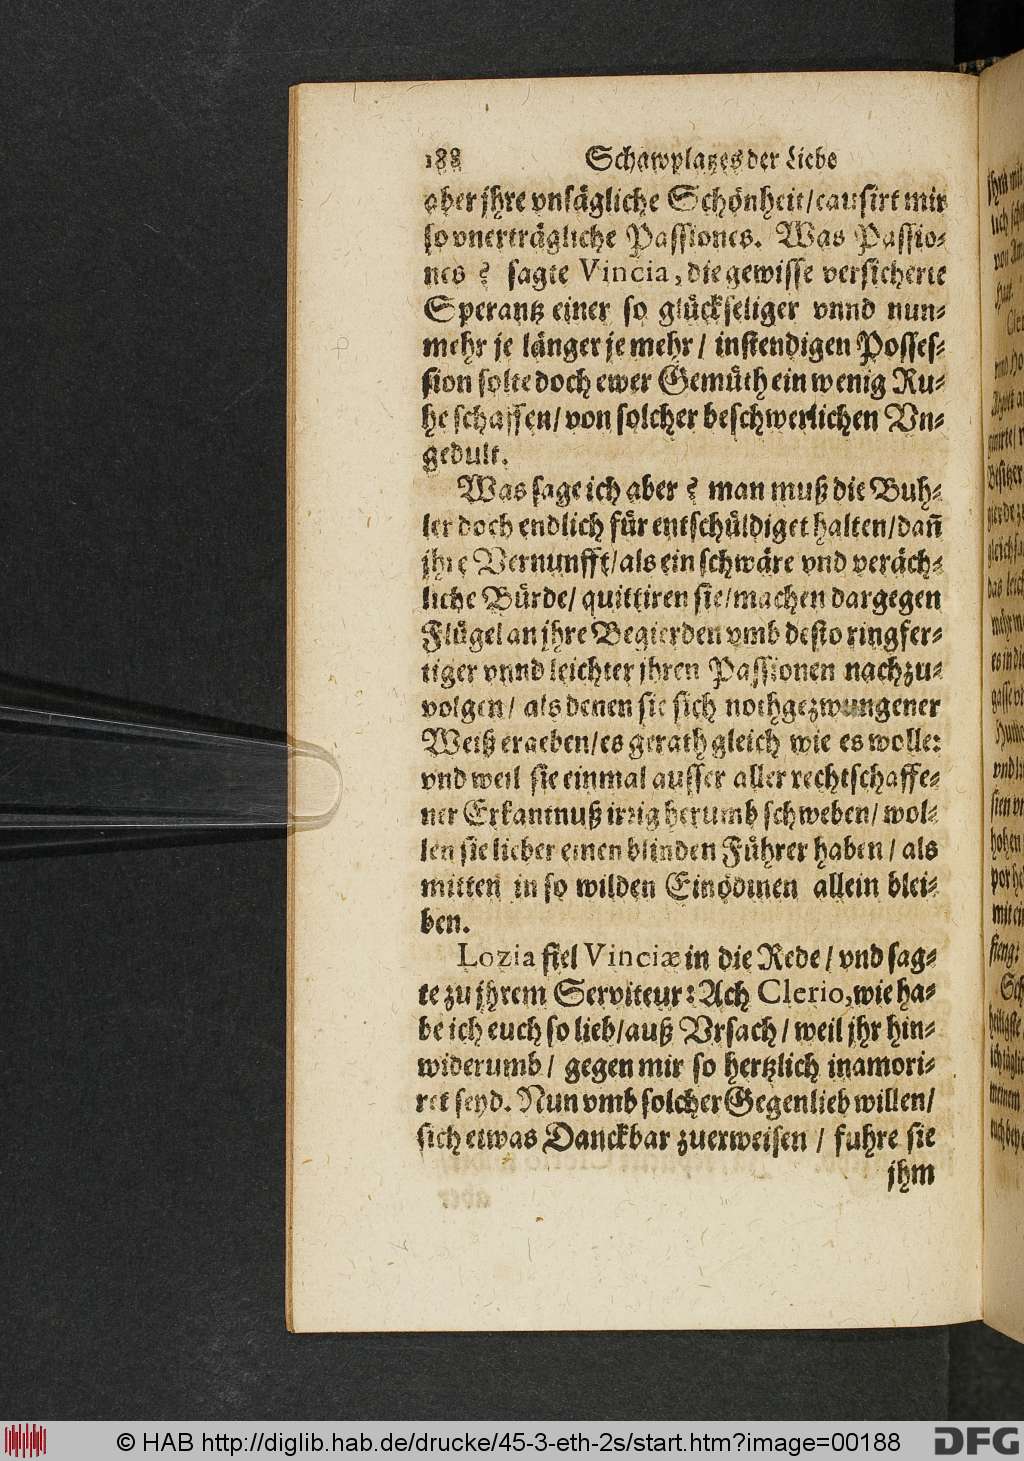 188 Schawplatzes der Liebe
aber jhre vnsägliche Schönheit/causirt mir
so vnerträgliche Passiones. Was Passio-
nes? sagte Vincia, die gewisse versicherte
Sperantz einer so glückseliger vnnd nun-
mehr je länger je mehr/ instendigen Posses-
sion solte doch ewer Gemüth ein wenig Ru-
he schaffen/ von solcher beschwerlichen Vn-
gedult.
Was sage ich aber? man muß die Buh-
ler doch endlich für entschüldiget halten/dañ
jhre Vernunfft/als ein schwäre vnd veräch-
liche Bürde/ quittiren sie/machen dargegen
Flügel an jhre Begierden vmb desto ringfer-
tiger vnnd leichter jhren Passionen nachzu-
volgen/ als denen sie sich nothgezwungener
Weiß ergeben/es gerath gleich wie es wolle:
vnd weil sie einmal ausser aller rechtschaffe-
ner Erkantnuß irrig herumb schweben/ wol-
len sie lieber einen blinden Führer haben/ als
mitten in so wilden Einödinen allein blei-
ben.
Lozia fiel Vinciæ in die Rede/ vnd sag-
te zu jhrem Serviteur: Ach Clerio, wie ha-
be ich euch so lieb/auß Vrsach/ weil jhr hin-
widerumb/ gegen mir so hertzlich inamori-
ret seyd. Nun vmb solcher Gegenlieb willen/
sich etwas Danckbar zuerweisen/ fuhre sie
jhm
© HAB http://diglib.hab.de/drucke/45-3-eth-2s/start.htm?image=00188
DFG